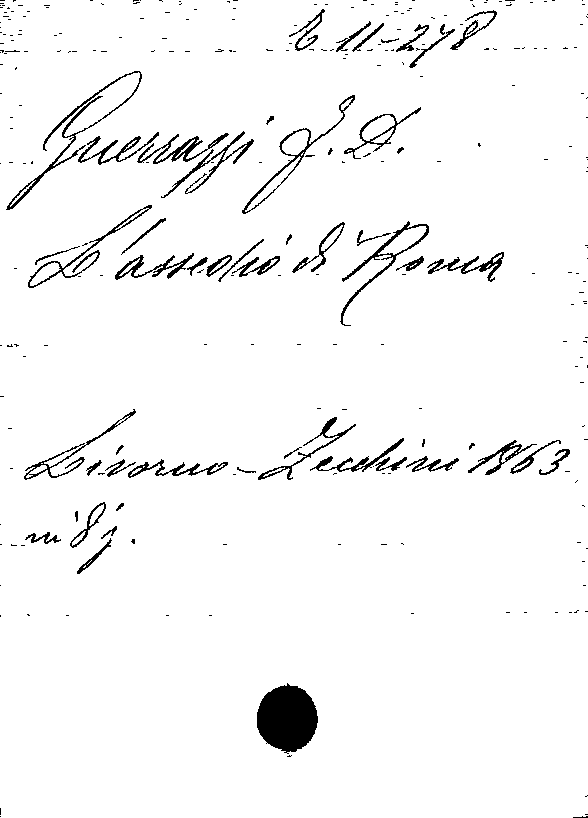 E 11-278
Guerrazzi F. D.
L'assedio di Roma
Livorno - Zecchini 1863
in 8